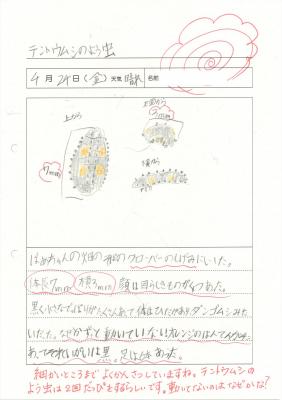 テントウムシのよう虫
4月24日(金) 天気 晴れ 名前
上から
正面から
3mm
7mm
横から
ばあちゃんの畑の前のクローバーのしげみにいた。
体長7mm 横3mm 顔は目らしきものが4つあった。
黒く小さなでっぱりがたくさんあって体はひらたがありダンゴムシみ
たいだった。なぜかずっと動いていない。オレンジの
あって
足は6本あった。
細かいところまでよくかんさつしていますね。テントウムシの
よう虫は2回だっぴをするらしいです。動いてないのはなぜかな?